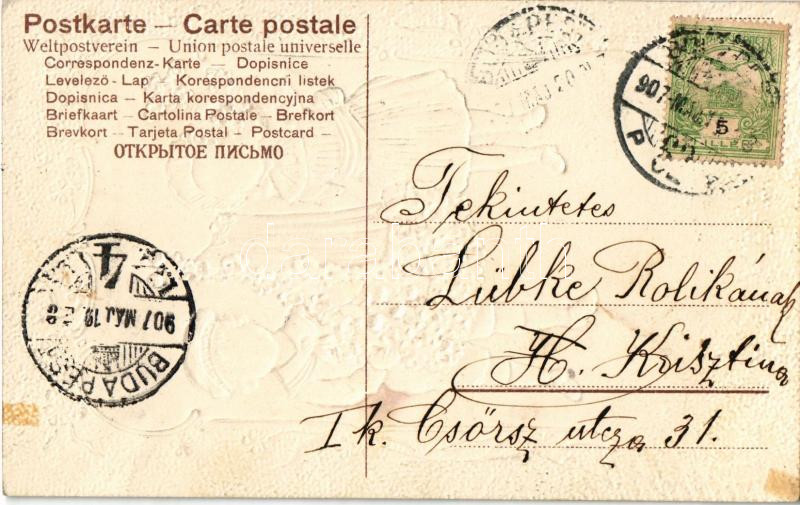 Postkarte — Carte postale
Weltpostverein — Union postale universelle
Correspondenz-Karte — Dopisnice
Levelező-Lap — Korespondencni listek
Dopisnica — Karta korespondencyjna
Briefkaart — Cartolina Postale — Brefkort
Brevkort — Tarjeta Postal — Postcard —
ОТКРЫТОЕ ПИСЬМО
BUDAPEST
MÁJ 20
907 MÁJ
5
FILLÉR
Tekintetes
Lübke Rolikának
H. Krisztina
I k. Csörsz utcza 31.
4
907 MÁJ.19. E 8
BUDAPEST